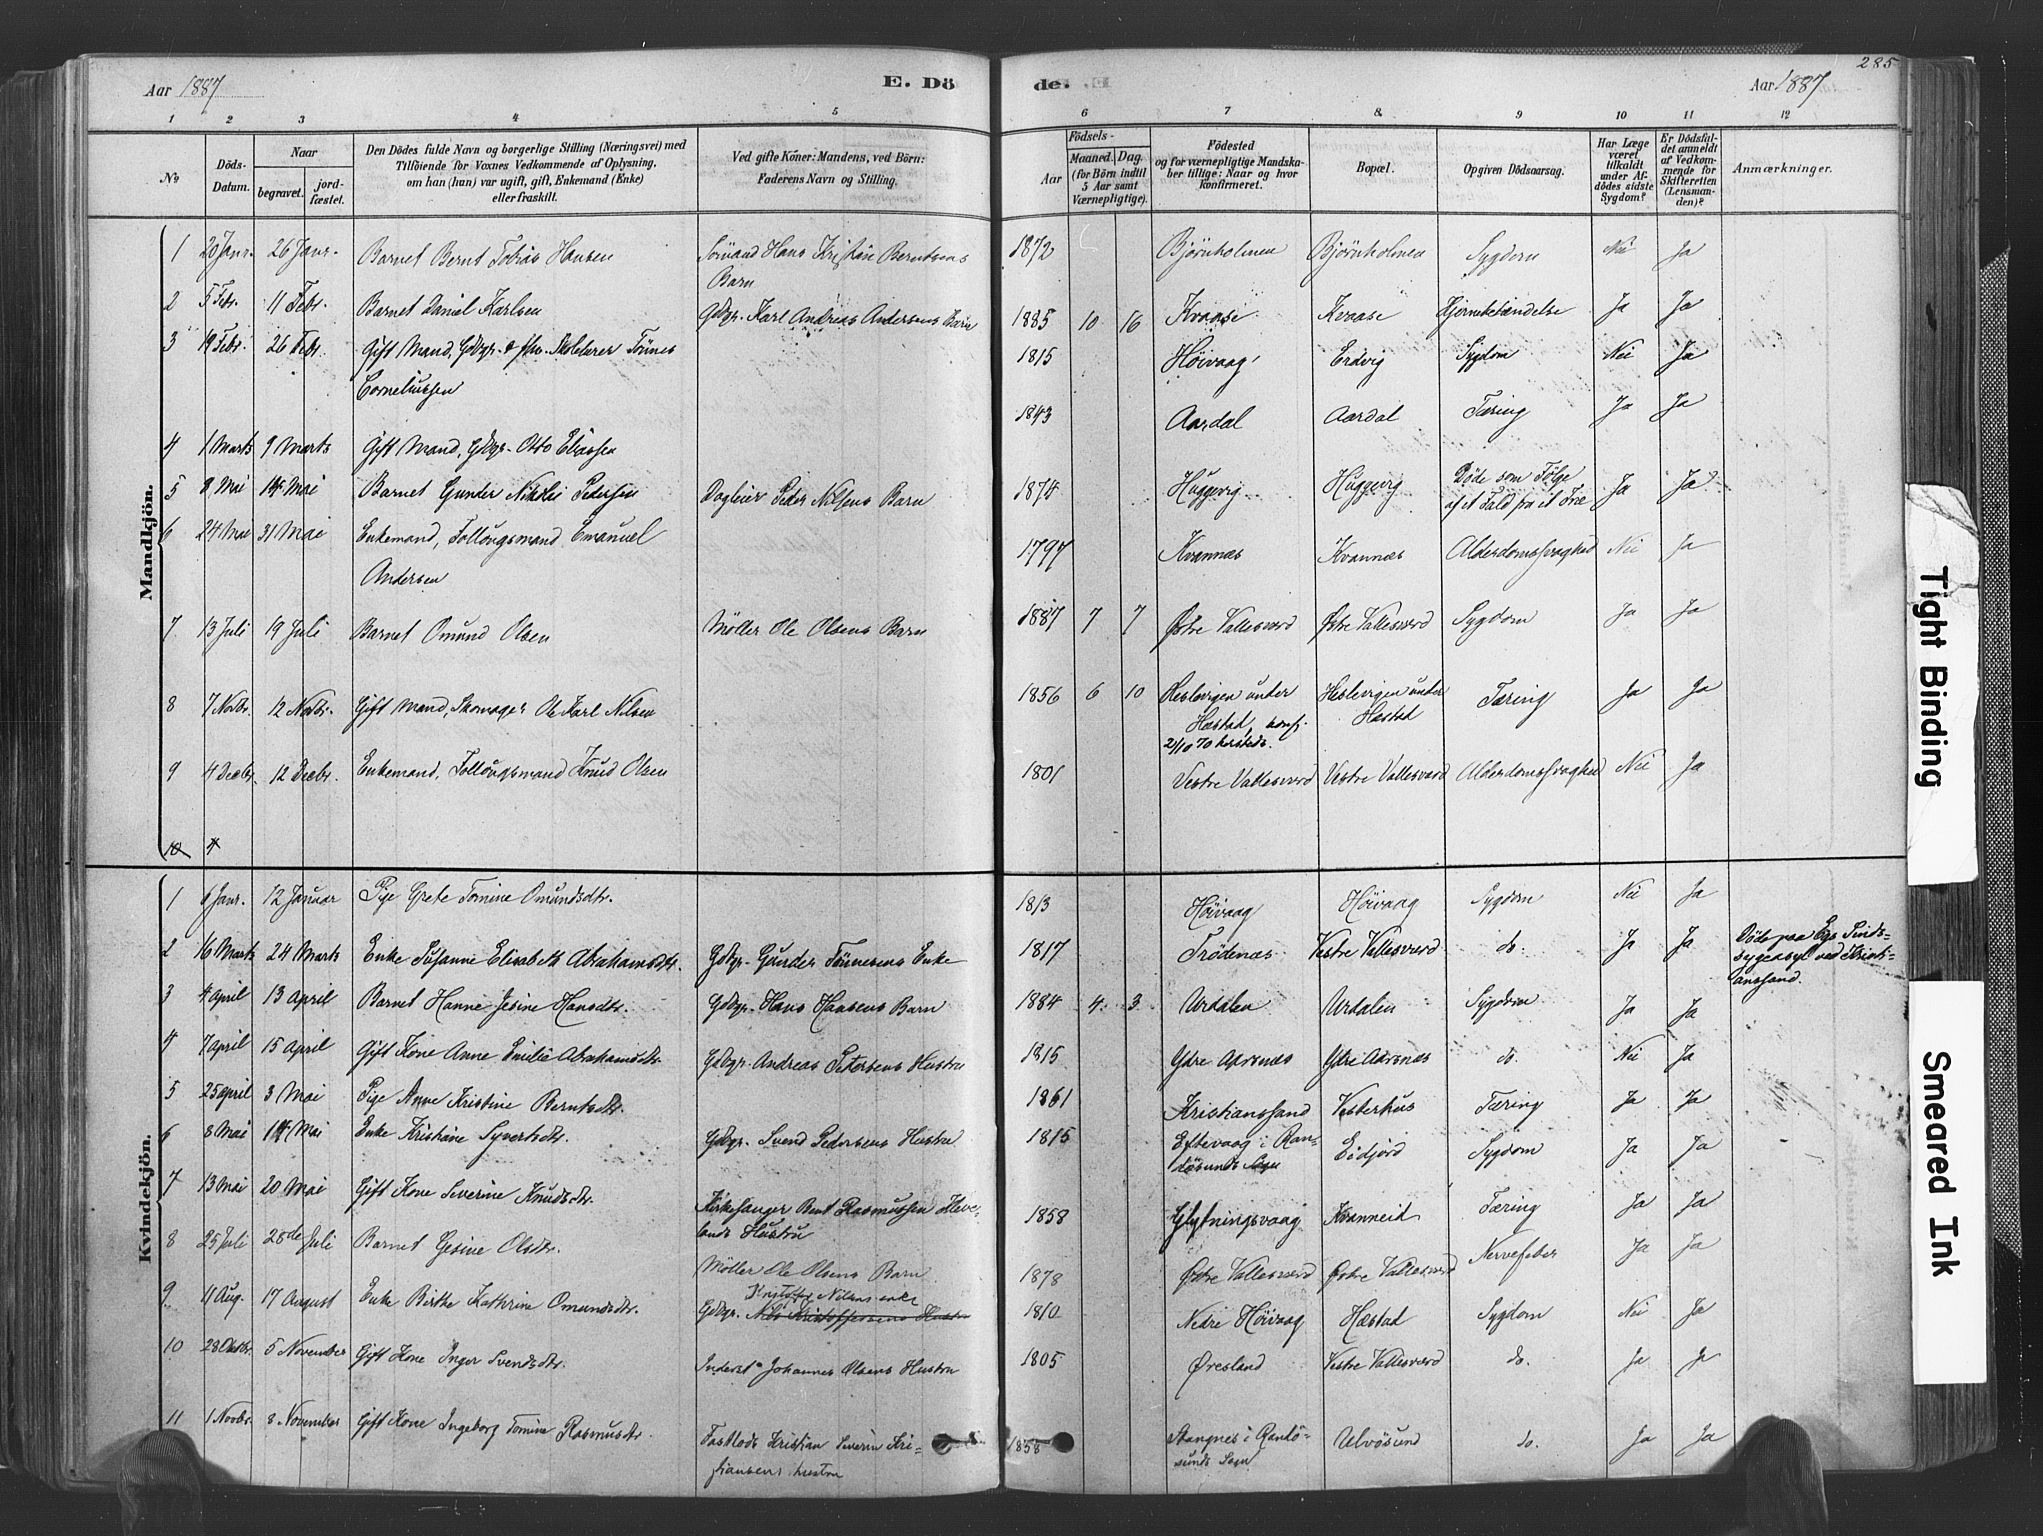 285
Aar 1887
E. Dö
de.
Aar 1887
1 2 3 4 5 6 7 8. 9 10 11 12
No
Döds-
Datum.
Naar
begravet.
jord-
fæstet.
Den Dödes fulde Navn og borgerlige Stilling (Næringsvei) med
Tilföiende for Voxnes Vedkommende af Oplysning,
om han (hun) var ugift, gift, Enkemand (Enke)
eller fraskilt.
Ved gifte Koner: Mandens, ved Börn:
Faderens Navn og Stilling.
Födsels-
Aar
Maaned.
Dag.
(for Börn indtil
5 Aar samt
Værnepligtige).
Födested
og for værnepligtige Mandska-
ber tillige: Naar og hvor
konfirmeret.
Bopæl.
Opgiven Dödsaarsag.
Har Læge
været
tilkaldt
under Af-
dödes sidste
Sygdom?
Er Dödsfal-
det anmeldt
af Vedkom-
mende for
Skifteretten
(Lensman-
den)?
Anmærkninger.
Mandkjön.
1 20 Janr. 26 Janr. Barnet Bernt Tobias Hansen Sømand Hans Kristian Berntsens 1872 Bjørnholmen Bjørnholmen Sygdom Nei Ja
Barn
2 5 Febr. 11 Febr. Barnet Daniel Karlsen Gdbgr. Karl Andreas Andersens Barn 1885 10 16 Kvaase Kvaase Hjernebetændelse Ja Ja
3 19 Febr. 26 Febr. Gift Mand, Gdbgr. & fhv. Skolelærer Tönnes 1815 Höivaag Eidvig Sygdom Nei Ja
Corneliussen
4 1 Marts 9 Marts Gift Mand, Gdbgr. Otto Eliassen 1843 Aardal Aardal Tæring Ja Ja
5 8 Mai 14 Mai Barnet Gunder Nikolai Petersen Dagleier Peder Nilsens Barn 1874 Huggevig Huggevig Döde som Fölge Ja Ja
af et Fald fra et Træ
6 24 Mai 31 Mai Enkemand, Follougsmand Emanuel 1797 Kvannes Kvannes Alderdomssvaghed Nei Ja
Andersen
7 13 Juli 19 Juli Barnet Omund Olsen Møller Ole Olsens Barn 1887 7 7 Østre Vallesværd Østre Vallesværd Sygdom Ja Ja
8 7 Novbr. 12 Novbr. Gift Mand, Skomager Ole Karl Nilsen 1856 6 10 Heslevigen under Heslevigen under Tæring Ja Ja
Hæstad, konf. Hæstad
2/10 70 hersteds.
9 4 Decbr. 12 Decbr. Enkemand, Follougsmand Knud Olsen 1801 Vestre Vallesværd Vestre Vallesværd Alderdomssvaghed Nei Ja
10 4
Kvindekjön.
1 6 Janr. 12 Januar Pige Grete Tomine Omundsdtr. 1813 Höivaag Höivaag Sygdom Nei Ja
2 16 Marts 24 Marts Enke Susanne Elisabeth Abrahamsdtr. Gdbgr. Gunder Tönnesens Enke 1817 Trödenæs Vestre Vallesværd do. Ja Ja Döde paa Egs Sinds-
sygeasyl ved Kristi-
anssand.
3 4 April 13 April Barnet Hanne Jesine Hansdtr. Gdbgr. Hans Hansens Barn 1884 4 3 Urdalen Urdalen Sygdom Ja Ja
4 7 April 15 April Gift Kone Anne Emilie Abrahamsdtr. Gdbgr. Andreas Petersens Hustru 1815 Ydre Aarsnes Ydre Aarsnes do. Nei Ja
5 25 April 3 Mai Pige Anne Kristine Berntsdtr. 1861 Kristianssand Vesterhus Tæring Ja Ja
6 8 Mai 14 Mai Enke Kristiane Syvertsdtr. Gdbgr. Svend Pedersens Hustru 1815 Eftevaag i Ran- Eidjord Sygdom Ja Ja
dösunds Sogn
7 13 Mai 20 Mai Gift Kone Severine Knudsdtr. Kirkesanger Bent Rasmussen Heve- 1858 Glytningsvaag Kvanneid Tæring Ja Ja
lands Hustru
8 25 Juli 28de Juli Barnet Gesine Olsdtr. Møller Ole Olsens Barn 1878 Østre Vallesværd Østre Vallesværd Nervefeber Ja Ja
9 11 Aug. 17 August Enke Birthe Kathrine Omundsdtr. Kristoffer Nilsens enke
Gdbgr. Nils Kristoffersens Hustru 1810 Nedre Höivaag Hæstad Sygdom Nei Ja
10 28 Oktbr. 5 November Gift Kone Inger Svendsdtr. Inderst Johannes Olsens Hustru 1805 Øresland Vestre Vallesværd do. Ja Ja
11 1 Novbr. 8 November Gift Kone Ingeborg Tomine Rasmusdtr. Fastlods Kristian Severin Kri- 1858 Stangnes i Randö- Ulvösund do. Ja Ja
stiansens hustru sunds Sogn
Tight Binding
Smeared Ink